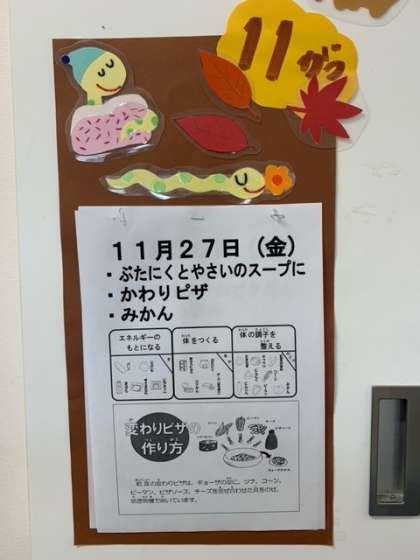 11がつ
11月27日（金）
・ぶたにくとやさいのスープに
・かわりピザ
・みかん
エネルギーの
もとになる
体をつくる
体の調子を
整える
変わりピザの
作り方
変わりピザは、ギョーザの皮に、ツナ、コーン、
ピーマン、ピザソース、チーズを